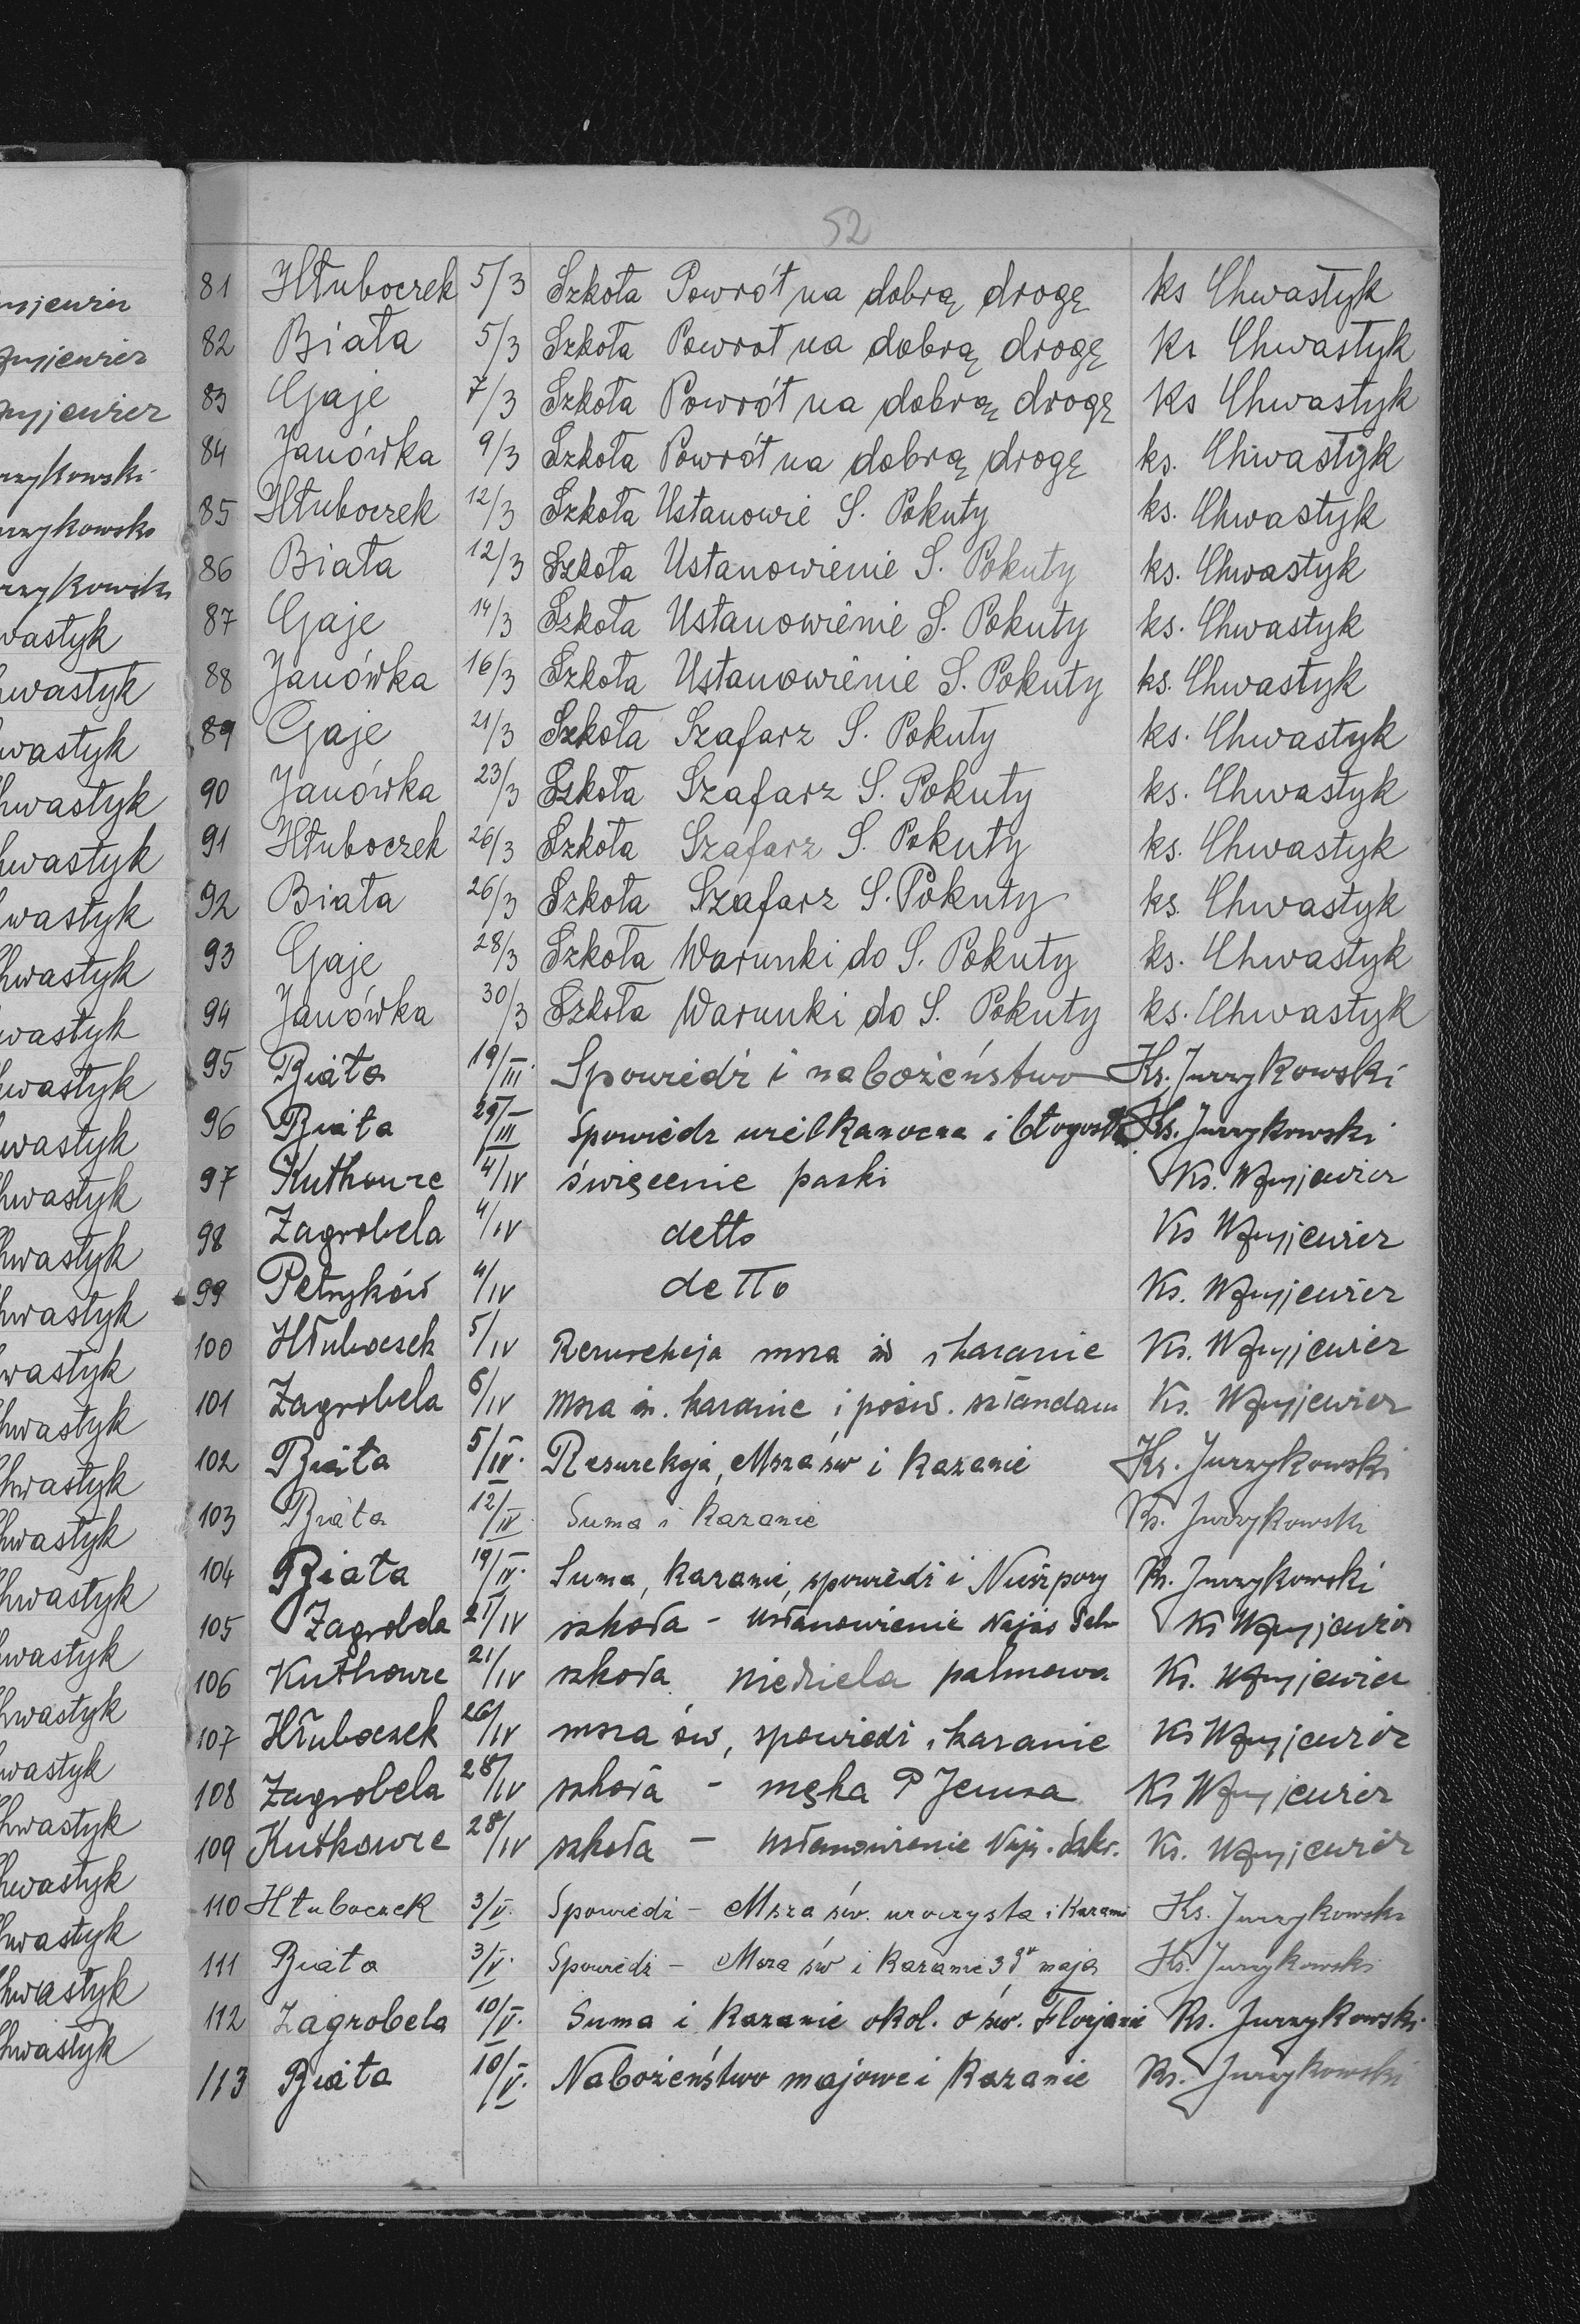 52
81 Hłuboczek 5/3 Szkoła Powrót na dobrą drogę ks Chwastyk
82 Biała 5/3 Szkoła Powrót na dobrą drogę ks Chwastyk
83 Gaje 7/3 Szkoła Powrót na dobrą drogę ks Chwastyk
84 Janówka 9/3 Szkoła Powrót na dobrą drogę ks. Chwastyk
85 Hłuboczek 12/3 Szkoła Ustanowie S. Pokuty ks. Chwastyk
86 Biała 12/3 Szkoła Ustanowienie S. Pokuty ks. Chwastyk
87 Gaje 14/3 Szkoła Ustanowienie S. Pokuty ks. Chwastyk
88 Janówka 16/3 Szkoła Ustanowienie S. Pokuty ks. Chwastyk
89 Gaje 21/3 Szkoła Szafarz S. Pokuty ks. Chwastyk
90 Janówka 23/3 Szkoła Szafarz S. Pokuty ks. Chwastyk
91 Hłuboczek 26/3 Szkoła Szafarz S. Pokuty ks. Chwastyk
92 Biała 26/3 Szkoła Szafarz S. Pokuty ks. Chwastyk
93 Gaje 28/3 Szkoła Warunki do S. Pokuty ks. Chwastyk
94 Janówka 30/3 Szkoła Warunki do S. Pokuty ks. Chwastyk
95 Biała 19/III. Spowiedź i nabożeństwo Ks. Jurzykowski
96 Biała 29/III Spowiedź wielkanocna i Ks. Jurzykowski
97 Kutkowce 4/IV święcenie paski Ks.
98 Zagrobela 4/IV detto Ks
99 Petryków 4/IV detto Ks.
100 Hłuboczek 5/IV Rezurekcja msza św i kazanie Ks.
101 Zagrobela 6/IV msza św. kazanie i pośw. sztandaru Ks.
102 Biała 5/IV. Resurekcja, Msza św i kazanie Ks. Jurzykowski
103 Biała 12/IV Suma i kazanie Ks. Jurzykowski
104 Biała 19/IV. Suma, kazanie, spowiedź i Nieszpory Ks. Jurzykowski
105 Zagrobela 21/IV szkoła - ustanowienie Najśś Ks
106 Kutkowce 21/IV szkoła niedziela palmowa Ks.
107 Hłuboczek 26/IV msza św, spowiedź i kazanie Ks
108 Zagrobela 28/IV szkoła - męka P Jezusa Ks
109 Kutkowce 28/IV szkoła - ustanowienie Najś. Sakr. Ks.
110 Hłuboczek 3/V. Spowiedź - Msza św. uroczysta i Kazani Ks. Jurzykowski
111 Biała 3/V. Spowiedź - Msza św i Kazanie 3go maja Ks. Jurzykowski
112 Zagrobela 10/V. Suma i kazanie okol. o św. Florjanie Ks. Jurzykowski
113 Biała 10/V. Nabożeństwo majowe i Kazanie Ks. Jurzykowski